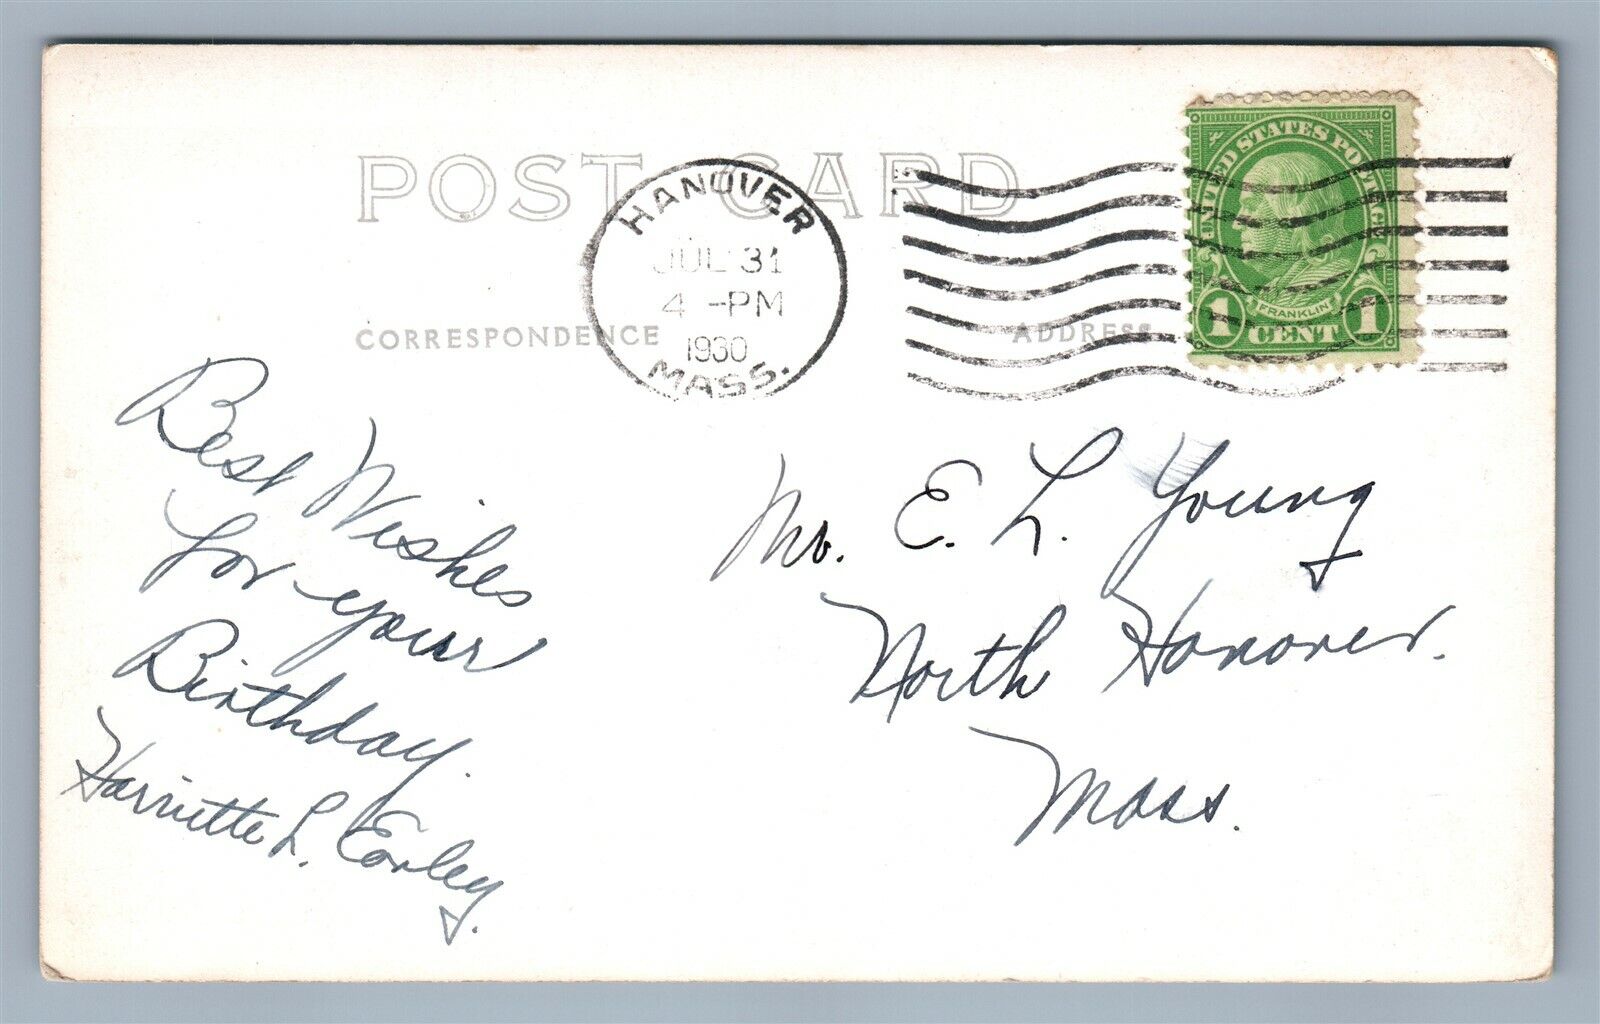 POST CARD
HANOVER
JUL 31
4 -PM
1930
MASS.
UNITED STATES POSTAGE
FRANKLIN
1 CENT 1
CORRESPONDENCE
ADDRESS
Best Wishes
for your
Birthday.
Harriette L. Earley.
Mr. E. L. Young
North Hanover.
Mass.